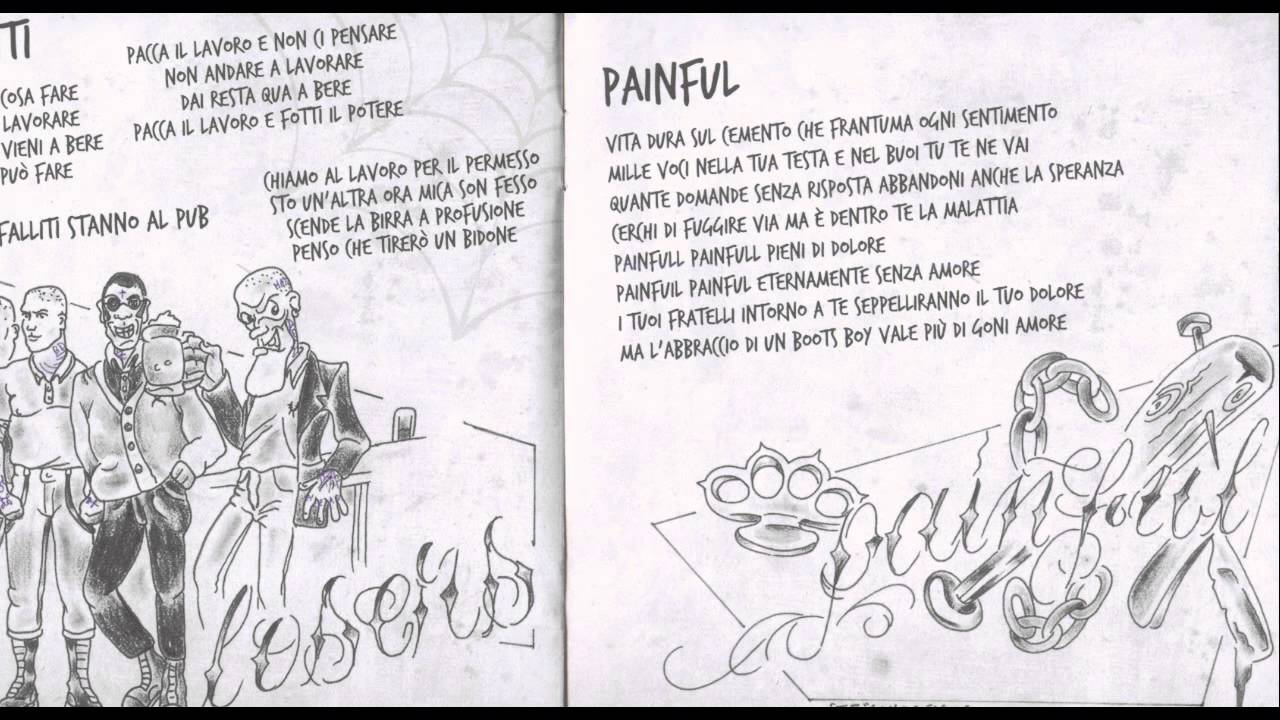 TI
COSA FARE
LAVORARE
VIENI A BERE
PUÒ FARE
FALLITI STANNO AL PUB
PACCA IL LAVORO E NON CI PENSARE
NON ANDARE A LAVORARE
DAI RESTA QUA A BERE
PACCA IL LAVORO E FOTTI IL POTERE
CHIAMO AL LAVORO PER IL PERMESSO
STO UN'ALTRA ORA MICA SON FESSO
SCENDE LA BIRRA A PROFUSIONE
PENSO CHE TIRERÒ UN BIDONE
losers
PAINFUL
VITA DURA SUL CEMENTO CHE FRANTUMA OGNI SENTIMENTO
MILLE VOCI NELLA TUA TESTA E NEL BUOI TU TE NE VAI
QUANTE DOMANDE SENZA RISPOSTA ABBANDONI ANCHE LA SPERANZA
CERCHI DI FUGGIRE VIA MA È DENTRO TE LA MALATTIA
PAINFULL PAINFULL PIENI DI DOLORE
PAINFUIL PAINFUL ETERNAMENTE SENZA AMORE
I TUOI FRATELLI INTORNO A TE SEPPELLIRANNO IL TUO DOLORE
MA L'ABBRACCIO DI UN BOOTS BOY VALE PIÙ DI GONI AMORE
painful